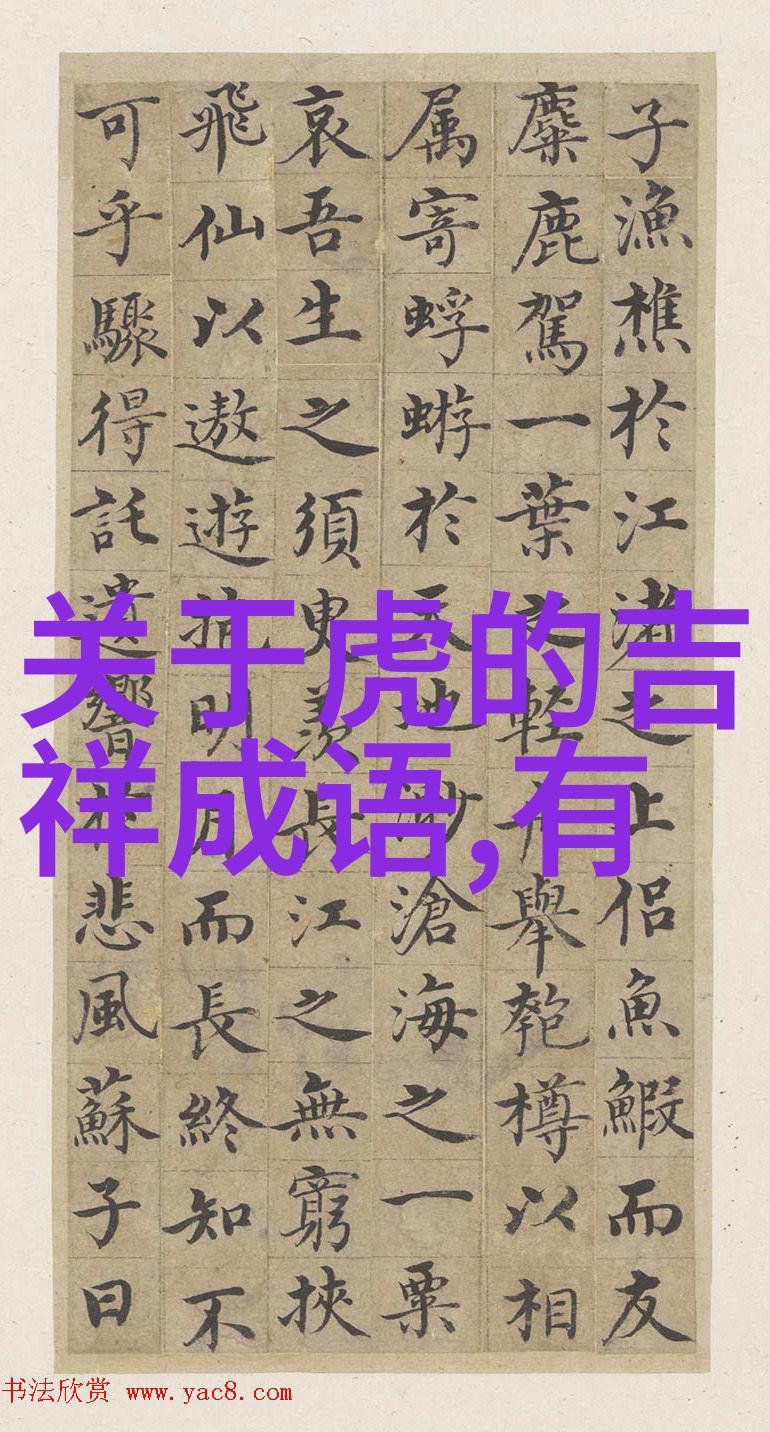 子漁樵於江渚之上侶魚鰕而友
麋鹿駕一葉之輕舟舉匏樽以相
属寄蜉蝣於天地渺滄海之一粟
哀吾生之須臾羨長江之無窮挾
飛仙以遨遊抱明月而長終知不
可乎驟得託遺響於悲風蘇子曰
关于虎的吉
祥成语,有
书法欣赏 www.yac8.com